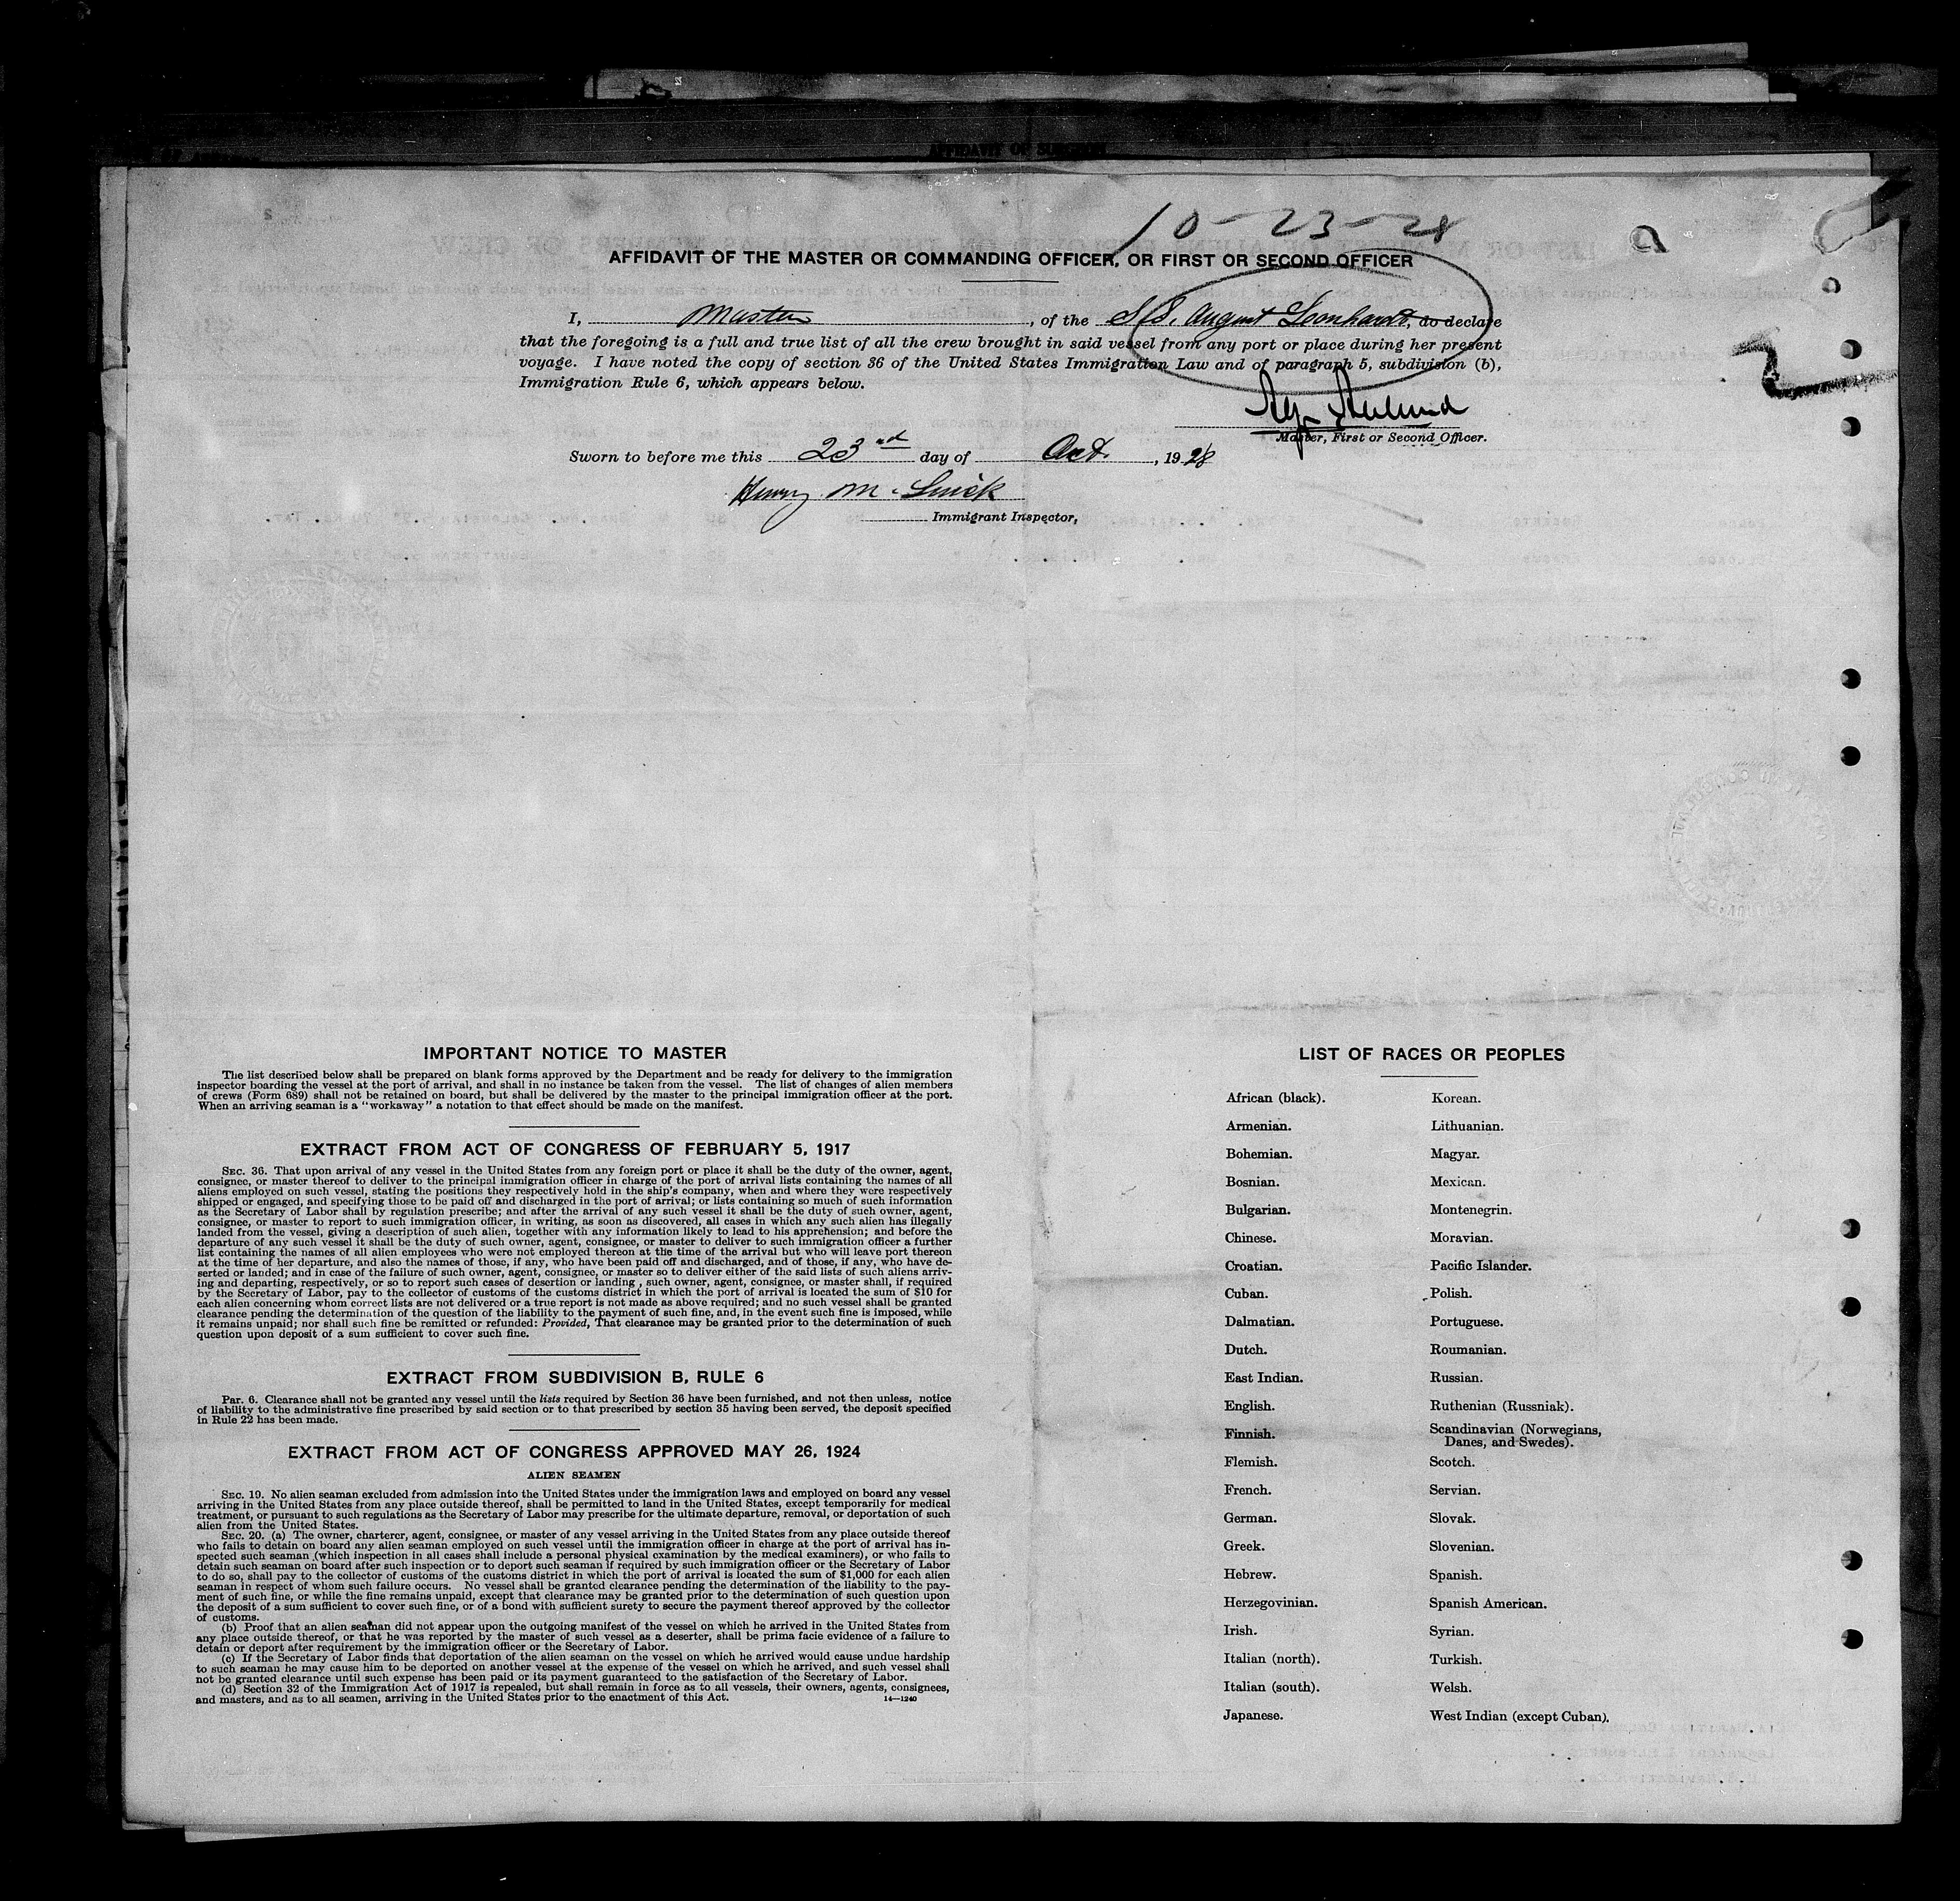 AFFIDAVIT OF SURGEON
10-23-28
AFFIDAVIT OF THE MASTER OR COMMANDING OFFICER, OR FIRST OR SECOND OFFICER
I, Master, of the S/S. August Leonhardt, do declare
that the foregoing is a full and true list of all the crew brought in said vessel from any port or place during her present
voyage. I have noted the copy of section 36 of the United States Immigration Law and of paragraph 5, subdivision (b),
Immigration Rule 6, which appears below.
Master, First or Second Officer.
Sworn to before me this 23rd day of Oct., 1928
Henry M.
Immigrant Inspector,
IMPORTANT NOTICE TO MASTER
The list described below shall be prepared on blank forms approved by the Department and be ready for delivery to the immigration
inspector boarding the vessel at the port of arrival, and shall in no instance be taken from the vessel. The list of changes of alien members
of crews (Form 689) shall not be retained on board, but shall be delivered by the master to the principal immigration officer at the port.
When an arriving seaman is a "workaway" a notation to that effect should be made on the manifest.
EXTRACT FROM ACT OF CONGRESS OF FEBRUARY 5, 1917
SEC. 36. That upon arrival of any vessel in the United States from any foreign port or place it shall be the duty of the owner, agent,
consignee, or master thereof to deliver to the principal immigration officer in charge of the port of arrival lists containing the names of all
aliens employed on such vessel, stating the positions they respectively hold in the ship's company, when and where they were respectively
shipped or engaged, and specifying those to be paid off and discharged in the port of arrival; or lists containing so much of such information
as the Secretary of Labor shall by regulation prescribe; and after the arrival of any such vessel it shall be the duty of such owner, agent,
consignee, or master to report to such immigration officer, in writing, as soon as discovered, all cases in which any such alien has illegally
landed from the vessel, giving a description of such alien, together with any information likely to lead to his apprehension; and before the
departure of any such vessel it shall be the duty of such owner, agent, consignee, or master to deliver to such immigration officer a further
list containing the names of all alien employees who were not employed thereon at the time of the arrival but who will leave port thereon
at the time of her departure, and also the names of those, if any, who have been paid off and discharged, and of those, if any, who have de-
serted or landed; and in case of the failure of such owner, agent, consignee, or master so to deliver either of the said lists of such aliens arriv-
ing and departing, respectively, or so to report such cases of desertion or landing, such owner, agent, consignee, or master shall, if required
by the Secretary of Labor, pay to the collector of customs of the customs district in which the port of arrival is located the sum of $10 for
each alien concerning whom correct lists are not delivered or a true report is not made as above required; and no such vessel shall be granted
clearance pending the determination of the question of the liability to the payment of such fine, and, in the event such fine is imposed, while
it remains unpaid; nor shall such fine be remitted or refunded: Provided, That clearance may be granted prior to the determination of such
question upon deposit of a sum sufficient to cover such fine.
EXTRACT FROM SUBDIVISION B, RULE 6
Par. 6. Clearance shall not be granted any vessel until the lists required by Section 36 have been furnished, and not then unless, notice
of liability to the administrative fine prescribed by said section or to that prescribed by section 35 having been served, the deposit specified
in Rule 22 has been made.
EXTRACT FROM ACT OF CONGRESS APPROVED MAY 26, 1924
ALIEN SEAMEN
SEC. 19. No alien seaman excluded from admission into the United States under the immigration laws and employed on board any vessel
arriving in the United States from any place outside thereof, shall be permitted to land in the United States, except temporarily for medical
treatment, or pursuant to such regulations as the Secretary of Labor may prescribe for the ultimate departure, removal, or deportation of such
alien from the United States.
SEC. 20. (a) The owner, charterer, agent, consignee, or master of any vessel arriving in the United States from any place outside thereof
who fails to detain on board any alien seaman employed on such vessel until the immigration officer in charge at the port of arrival has in-
spected such seaman (which inspection in all cases shall include a personal physical examination by the medical examiners), or who fails to
detain such seaman on board after such inspection or to deport such seaman if required by such immigration officer or the Secretary of Labor
to do so, shall pay to the collector of customs of the customs district in which the port of arrival is located the sum of $1,000 for each alien
seaman in respect of whom such failure occurs. No vessel shall be granted clearance pending the determination of the liability to the pay-
ment of such fine, or while the fine remains unpaid, except that clearance may be granted prior to the determination of such question upon
the deposit of a sum sufficient to cover such fine, or of a bond with sufficient surety to secure the payment thereof approved by the collector
of customs.
(b) Proof that an alien seaman did not appear upon the outgoing manifest of the vessel on which he arrived in the United States from
any place outside thereof, or that he was reported by the master of such vessel as a deserter, shall be prima facie evidence of a failure to
detain or deport after requirement by the immigration officer or the Secretary of Labor.
(c) If the Secretary of Labor finds that deportation of the alien seaman on the vessel on which he arrived would cause undue hardship
to such seaman he may cause him to be deported on another vessel at the expense of the vessel on which he arrived, and such vessel shall
not be granted clearance until such expense has been paid or its payment guaranteed to the satisfaction of the Secretary of Labor.
(d) Section 32 of the Immigration Act of 1917 is repealed, but shall remain in force as to all vessels, their owners, agents, consignees,
and masters, and as to all seamen, arriving in the United States prior to the enactment of this Act. 14—1240
LIST OF RACES OR PEOPLES
African (black).
Armenian.
Bohemian.
Bosnian.
Bulgarian.
Chinese.
Croatian.
Cuban.
Dalmatian.
Dutch.
East Indian.
English.
Finnish.
Flemish.
French.
German.
Greek.
Hebrew.
Herzegovinian.
Irish.
Italian (north).
Italian (south).
Japanese.
Korean.
Lithuanian.
Magyar.
Mexican.
Montenegrin.
Moravian.
Pacific Islander.
Polish.
Portuguese.
Roumanian.
Russian.
Ruthenian (Russniak).
Scandinavian (Norwegians,
Danes, and Swedes).
Scotch.
Servian.
Slovak.
Slovenian.
Spanish.
Spanish American.
Syrian.
Turkish.
Welsh.
West Indian (except Cuban).